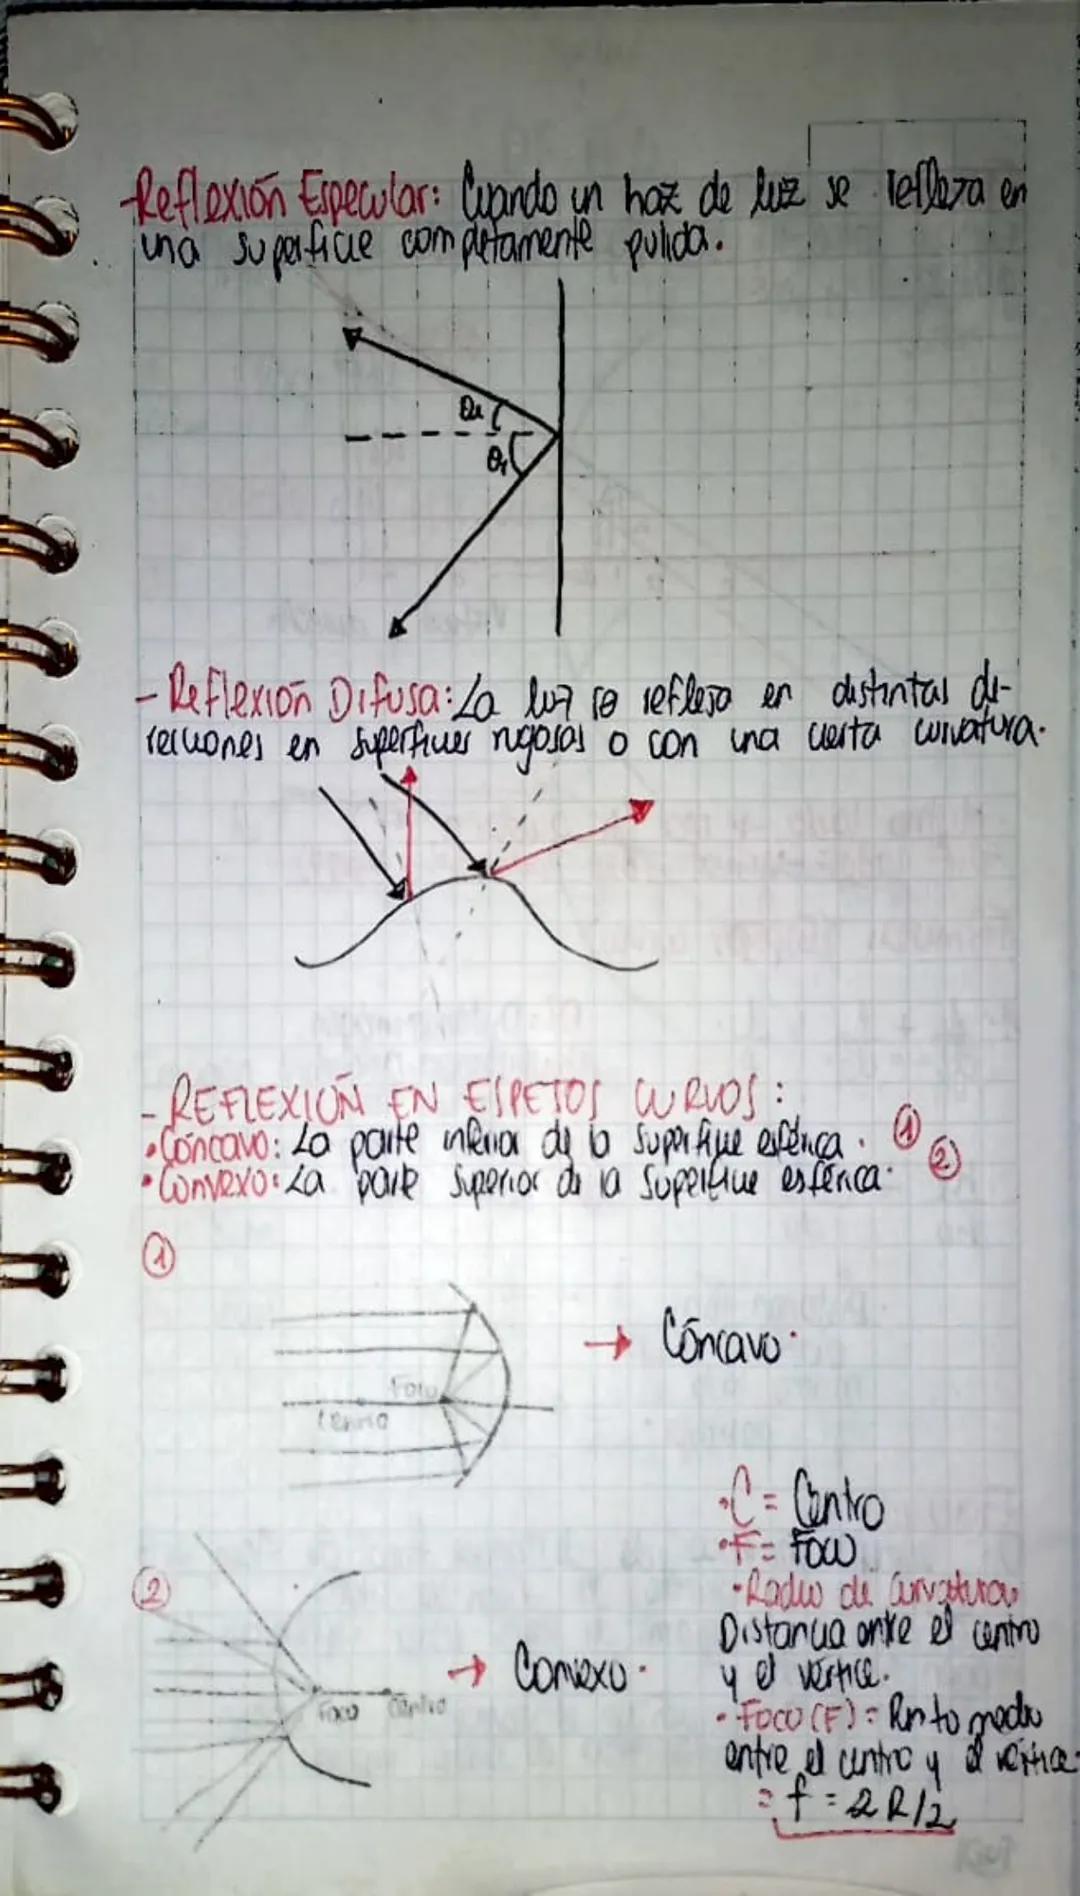 -Reflexión Especular: Cuando un haz de luz se refleja en
una superficie completamente pulida.
θr
- Reflexión Difusa: La luz se refleja en distintas di-
recciones en superficies rugosas o con una cierta curvatura.
- REFLEXIÓN EN ESPEJOS CURVOS:
•Cóncavo: La parte inferior de la superficie esférica. ①
•Convexo: La parte superior de la superficie esférica. ②
①
→ Cóncavo.
Foco
Centro
•C = Centro
•F = Foco
②
•Radio de curvatura
Distancia entre el centro
→ Convexo.
y el vértice.
Foco Centro
• Foco (F) = Punto medio
entre el centro y el vértice
= f = 2R/2